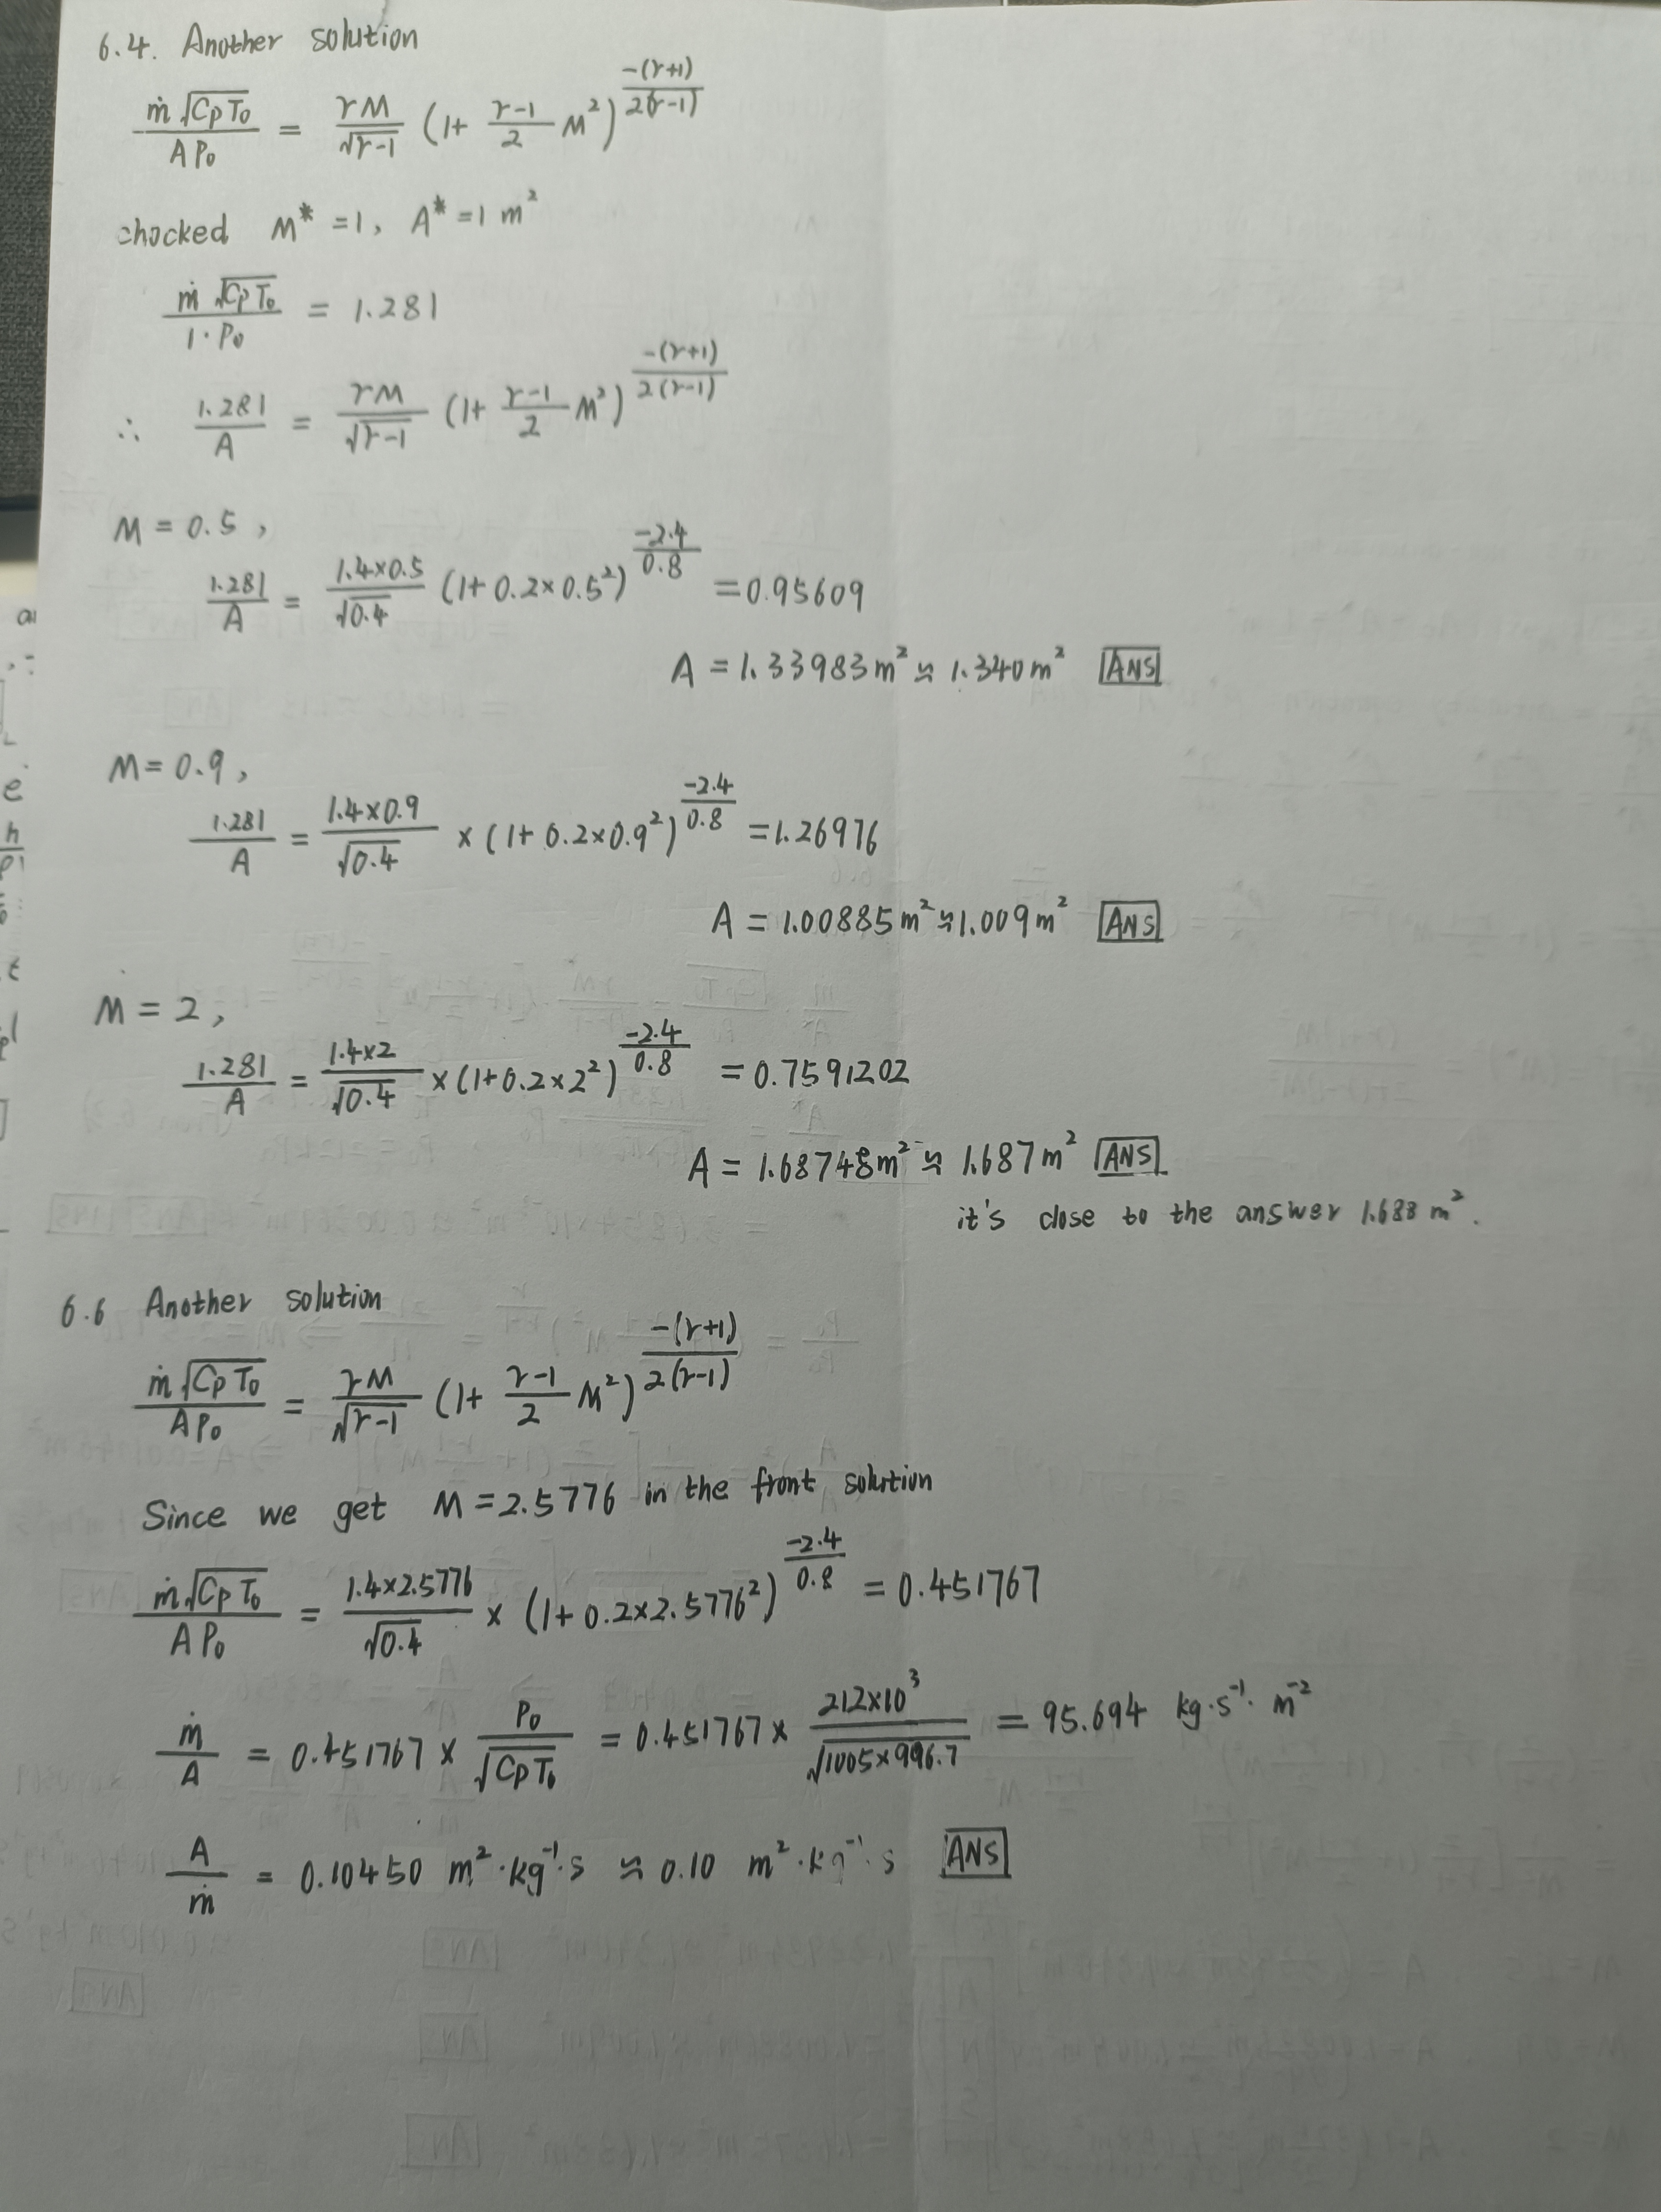 6.4. Another solution
ṁ√(CpT₀) / (A P₀) = γM / √(γ-1) (1+ (γ-1)/2 M²)^(-(γ+1)/(2(γ-1)))
chocked M* = 1, A* = 1 m²
ṁ√(CpT₀) / (1·P₀) = 1.281
∴ 1.281/A = γM / √(γ-1) (1+ (γ-1)/2 M²)^(-(γ+1)/(2(γ-1)))
M = 0.5,
1.281/A = (1.4×0.5)/√0.4 (1+ 0.2×0.5²)^(-2.4/0.8) = 0.95609
A = 1.33983 m² ≈ 1.340 m² ANS
M = 0.9,
1.281/A = (1.4×0.9)/√0.4 × (1+ 0.2×0.9²)^(-2.4/0.8) = 1.26976
A = 1.00885 m² ≈ 1.009 m² ANS
M = 2,
1.281/A = (1.4×2)/√0.4 × (1+0.2×2²)^(-2.4/0.8) = 0.7591202
A = 1.68748 m² ≈ 1.687 m² ANS
it's close to the answer 1.688 m².
6.6 Another solution
ṁ√(CpT₀) / (A P₀) = γM / √(γ-1) (1+ (γ-1)/2 M²)^(-(γ+1)/(2(γ-1)))
Since we get M = 2.5776 in the front solution
ṁ√(CpT₀) / (A P₀) = (1.4×2.5776)/√0.4 × (1+ 0.2×2.5776²)^(-2.4/0.8) = 0.451767
ṁ/A = 0.451767 × P₀/√(CpT₀) = 0.451767 × (212×10³)/√(1005×996.7) = 95.694 kg·s⁻¹·m⁻²
A/ṁ = 0.10450 m²·kg⁻¹·s ≈ 0.10 m²·kg⁻¹·s ANS